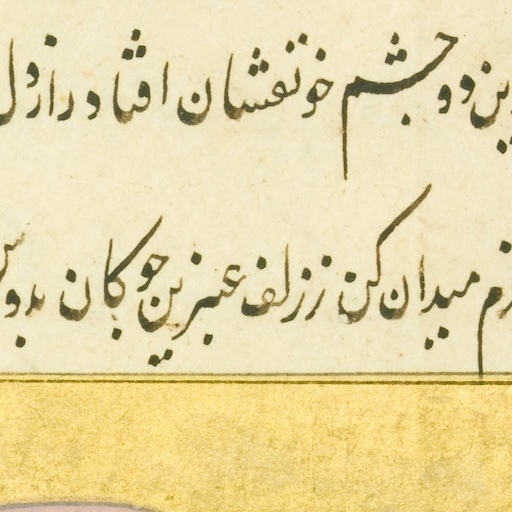 ین دو چشم خونفشان افتاد راز دل
عزم میدان کن ز زلف عنبرین چوکان بدوش